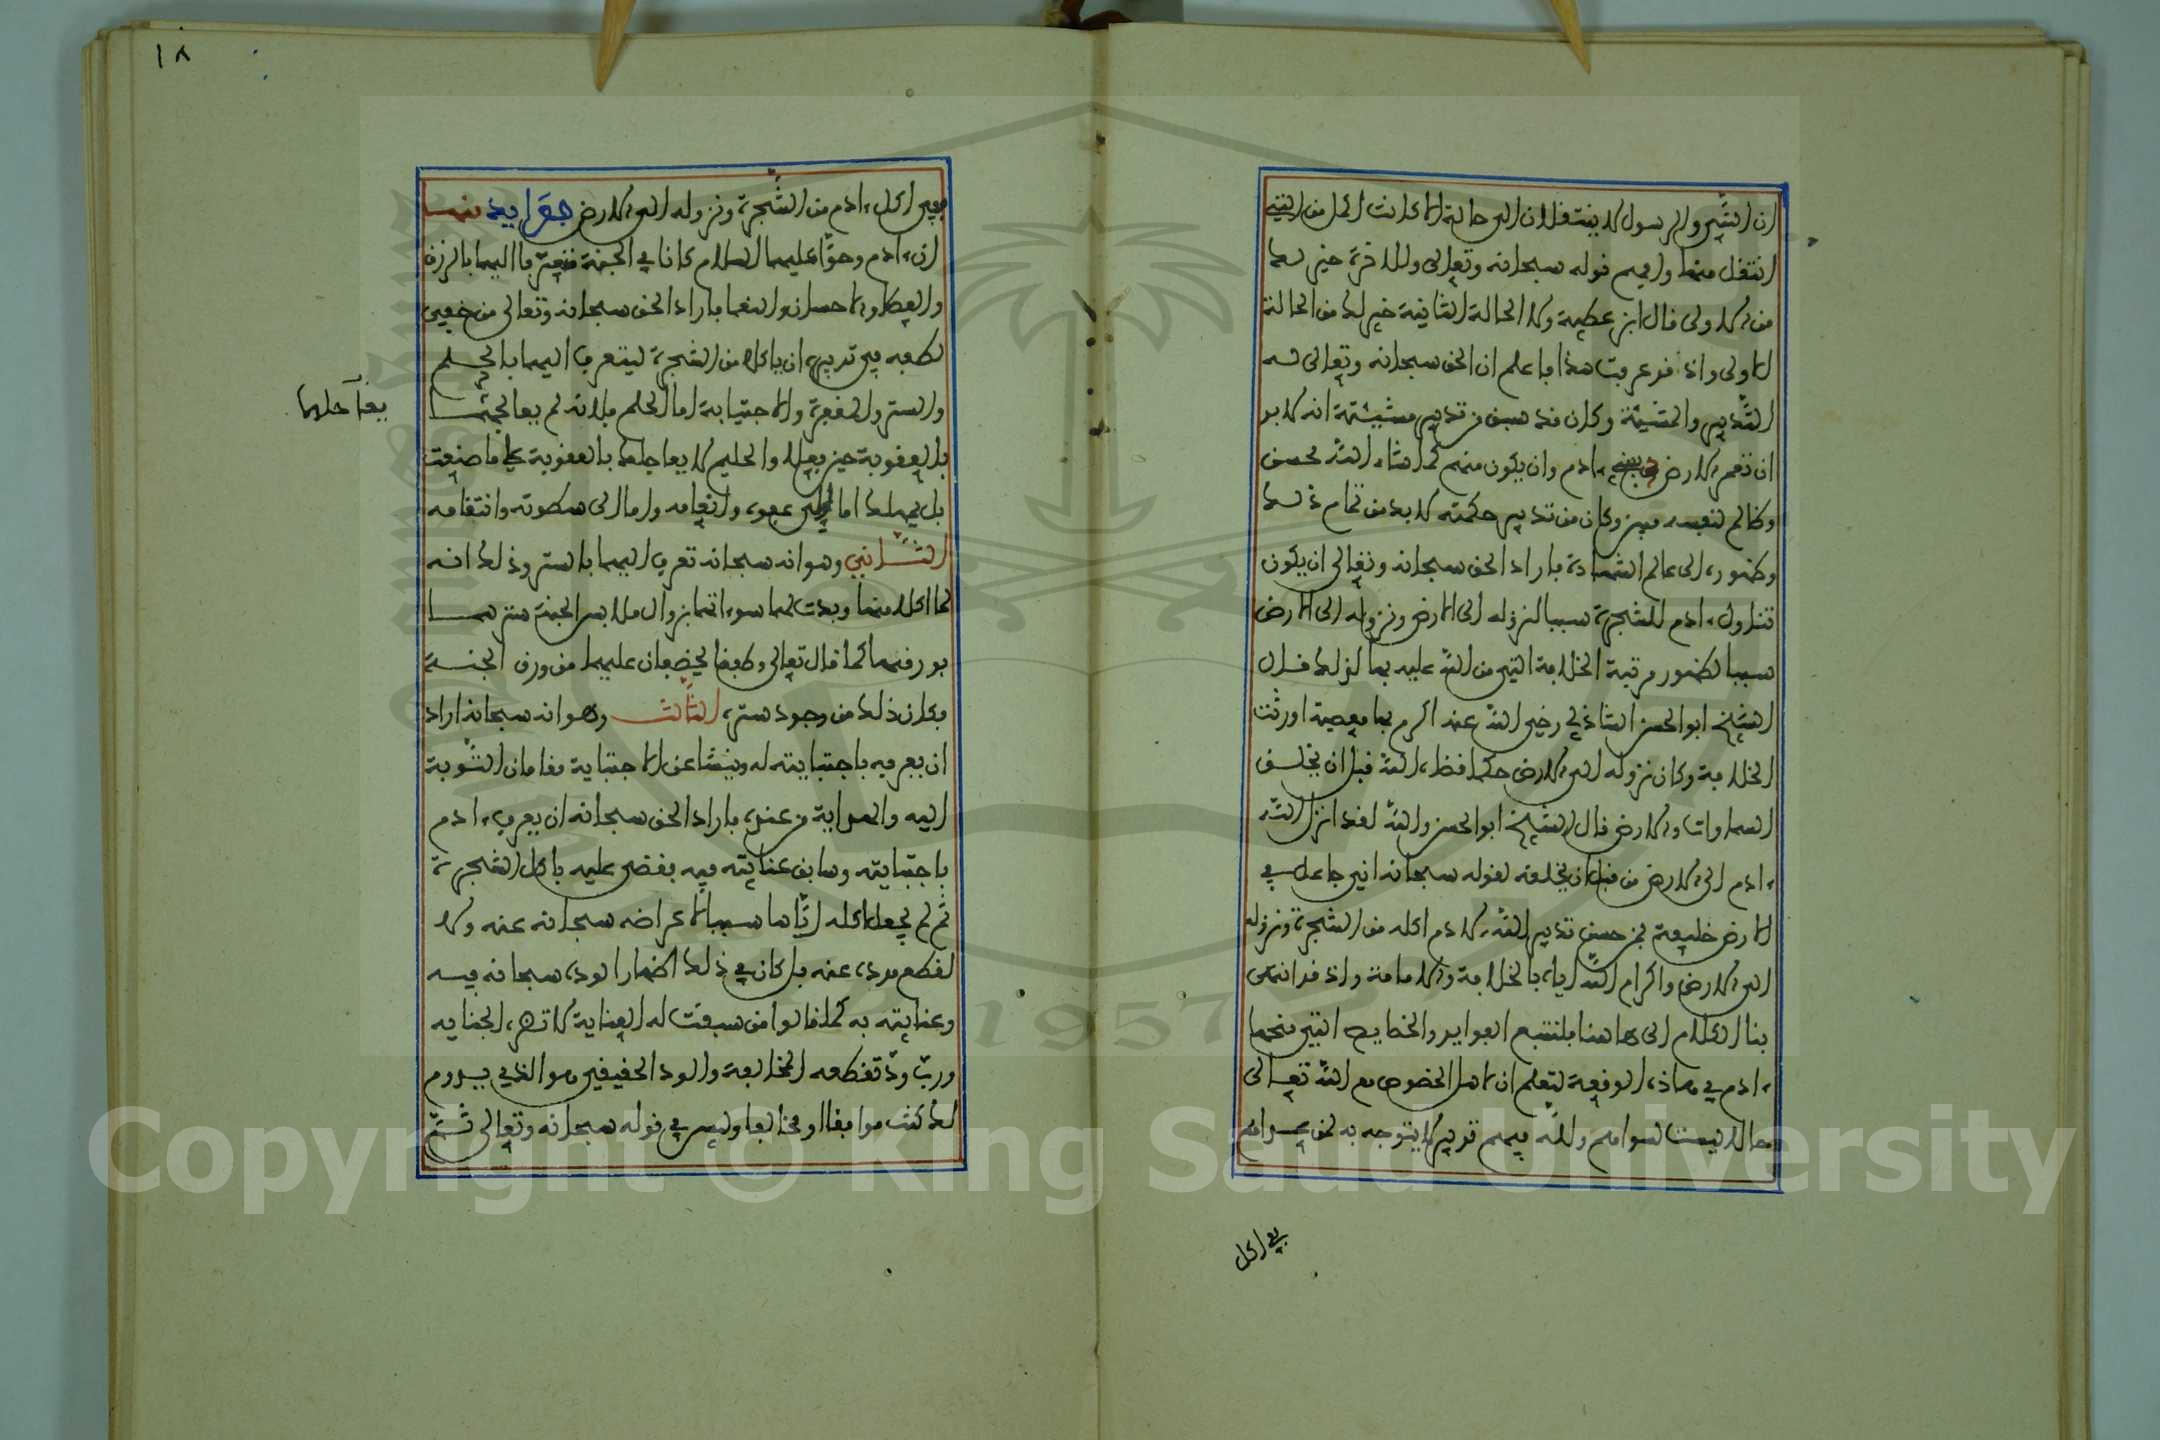 ان النبي والرسول لا ينتقل ان الى حالة الا كانت اكمل من التي
انتقل منها وافهم قوله سبحانه وتعالى وللاخرة خير لك
من الاولى قال ابن عطية ولا الحالة الثانية خير لك من الحالة
الاولى واذ قد عرفت هذا فاعلم ان الحق سبحانه وتعالى له
التدبير والمشيئة وكان قد سبق من تدبيره ومشيئته انه لا بد
ان تعمر الارض ببني ادم وان يكون منهم كما شاء الله محسن
وظالم لنفسه مبين وكان من تدبير حكمته لا بد من تمام ذلك
وظهوره الى عالم الشهادة فاراد الحق سبحانه وتعالى ان يكون
تناول ادم للشجرة سببا لنزوله الى الارض ونزوله الى الارض
سببا لظهور مرتبة الخلافة التي من الله عليه بها لذلك قال
الشيخ ابو الحسن الشاذلي رضي الله عنه اكرم بها معصية اورثت
الخلافة وكان نزوله الى الارض حكما قضاه الله قبل ان يخلق
السماوات والارض قال الشيخ ابو الحسن والله لقد انزل الله
ادم الى الارض من قبل ان يخلقه لقوله سبحانه اني جاعل في
الارض خليفة فمن حسن تدبير الله لادم اكله من الشجرة ونزوله
الى الارض واكرام الله اياه بالخلافة والامامة واذ قد انتهى
بنا الكلام الى هاهنا فلنتتبع الفوايد والخصايص التي منحها
ادم في هاذه الوقعة لتعلم ان لاهل الخصوص مع الله تعالى
حالا ليست لسواهم ولله فيهم تدبير لا يتوجه به لمن عداهم
ففي اكل
١٨
ففي اكل ادم من الشجرة ونزوله الى الارض فوايد منها
ان ادم وحوا عليهما السلام كانا في الجنة فتعرف اليهما بالرزق
والعطا والاحسان والنعما فاراد الحق سبحانه وتعالى من خفي
لطفه في تدبيره ان ياكلا من الشجرة ليتعرف اليهما بالحلم
والستر والمغفرة والاجتباية اما الحلم فلانه لم يعالجهما
بالعقوبة حين فعلا والحليم لا يعاجلك بالعقوبة على ما صنعت
بل يمهلك اما الى عفوه وانعامه واما الى سطوته وانتقامه
الثاني وهو انه سبحانه تعرف اليهما بالستر وذلك انه
لما اكلا منها وبدت لهما سوءاتهما بزوال ملابس الجنة سترهما
بورقهما كما قال تعالى وطفقا يخصفان عليهما من ورق الجنة
فكان ذلك من وجود ستره الثالث وهو انه سبحانه اراد
ان يعرفه باجتبايته له وينشا عن الاجتباية مقامان التوبة
اليه والهداية من عنده فاراد الحق سبحانه ان يعرف ادم
باجتبايته وسابق عنايته فيه فقضى عليه باكل الشجرة
ثم لم يجعل اكله اياها سببا لاعراضه سبحانه عنه ولا
لقطع مدده عنه بل كان في ذلك اظهارا لوده سبحانه فيه
وعنايته به كما قالوا من سبقت له العناية لا تضره الجنايه
ورب ود تقطعه المخالفة والود الحقيقي هو الذي يدوم
لك كنت موافقا او مخالفا وليس في قوله سبحانه وتعالى ثم